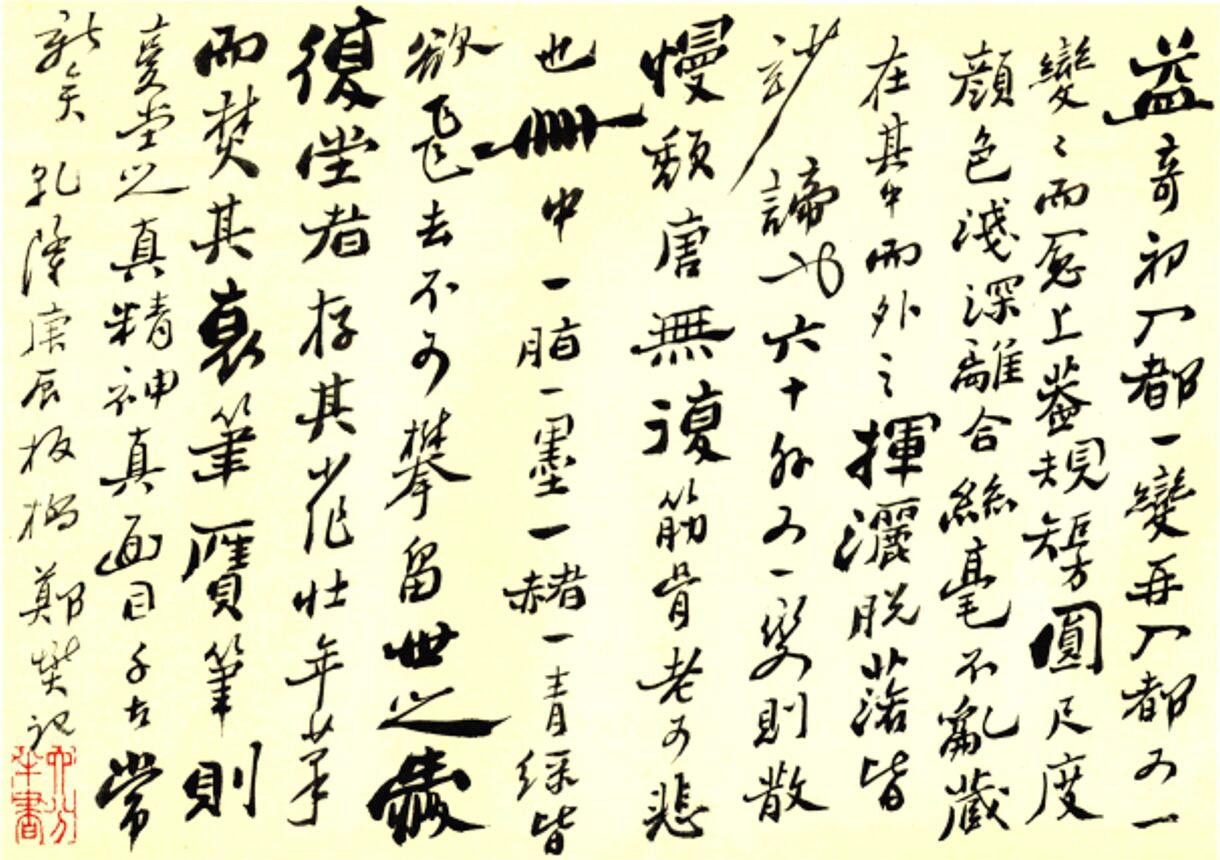 益奇初入都一變再入都又一
變變而愈上蓋規矩方圓尺度
顏色淺深離合絲毫不亂藏
在其中而外之揮灑脫落皆
妙諦也六十外又一變則散
慢頹唐無復筋骨老可悲
也冊中一脂一墨一赭一青綠皆
欲飛去不可攀留世之愛
復堂者存其少作壯年筆
而焚其衰筆贗筆則
復堂之真精神真面目千古常
新矣 乾隆庚辰板橋鄭燮記
六分半書